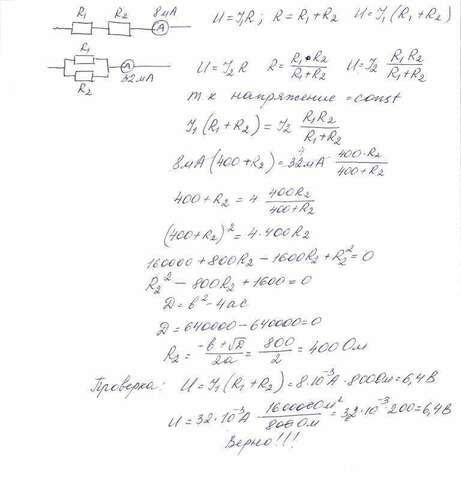 R₁ R₂ 8мА A U=I₁R; R=R₁+R₂ U=I₁(R₁+R₂)
R₁ R₂ A 32мА U=I₂R R=R₁•R₂/(R₁+R₂) U=I₂ R₁R₂/(R₁+R₂)
т к напряжение=const
I₁(R₁+R₂)=I₂ R₁R₂/(R₁+R₂)
8мА(400+R₂)=32мА· 400·R₂/(400+R₂)
400+R₂=4 400R₂/(400+R₂)
(400+R₂)²=4·400R₂
160000+800R₂-1600R₂+R₂²=0
R₂²-800R₂+1600=0
D=b²-4ac
D=640000-640000=0
R₂=(-b+√D)/2a=800/2=400Ом
Проверка: U=I₁(R₁+R₂)=8·10⁻³А·800Ом=6,4В
U=32·10⁻³А· 160000Ом²/800Ом=32·10⁻³·200=6,4В
Верно!!!